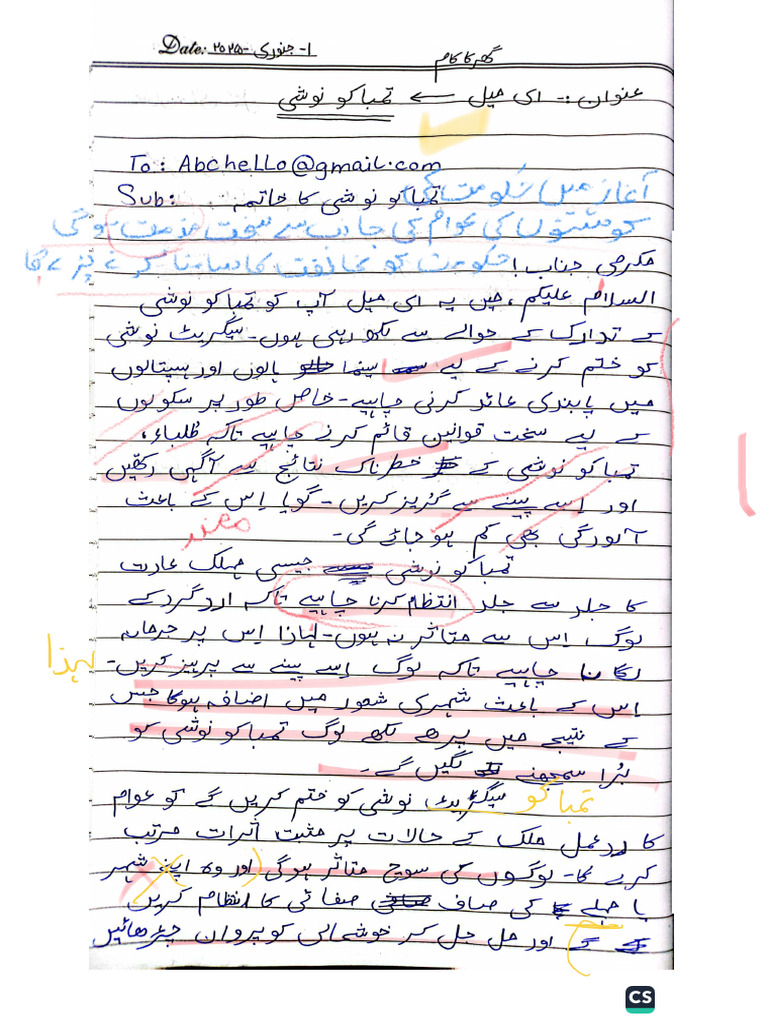 Date: ۱- جنوری -۲۰۲۵
گھر کا کام
عنوان :- ای میل ← تمباکو نوشی
To: Abchello@gmail.com
Sub: تمباکو نوشی کا خاتمہ
آغاز میں حکومت کی
کوششوں کی عوام کی جانب سے سخت نوشی
حکومت کو مخالفت کا سامنا کرنے پڑے گا
مکرمی جناب!
السلام علیکم، میں یہ ای میل آپ کو تمباکو نوشی
کے تدارک کے حوالے سے لکھ رہی ہوں۔ سیگریٹ نوشی
کو ختم کرنے کے لیے سینما ہالوں اور ہسپتالوں
میں پابندی عائد کرنی چاہیے۔ خاص طور پر سکولوں
کے لیے سخت قوانین قائم کرنے چاہیے تاکہ طلباء،
تمباکو نوشی کے خطرناک نتائج سے آگہی رکھیں
اور اسے پینے سے گریز کریں۔ گویا اِس کے باعث
آلودگی بھی کم ہو جائے گی۔
مضر
تمباکو نوشی جیسی مہلک عادت
کا جلد سے جلد انتظام کرنا چاہیے تاکہ اردگرد کے
لوگ اس سے متاثر نہ ہوں۔ لہاذا اِس پر جرمانہ
لہذا
لگانا چاہیے تاکہ لوگ اِسے پینے سے پرہیز کریں۔
اِس کے باعث شہری شعور میں اضافہ ہوگا جس
کے نتیجے میں پڑھے لکھے لوگ تمباکو نوشی کو
بُرا سمجھنے لگیں گے۔
تمباکو
سیگریٹ نوشی کو ختم کریں گے کو عوام
کا ردِعمل ملک کے حالات پر مثبت اثرات مرتب
کرے گا۔ لوگوں کی سوچ متاثر ہوگی اور وہ اپنے شہر
یا محلے کی صاف صفائی کا انتظام کریں
گے اور مل جل کر خوشحالی کو پروان چڑھائیں
CS